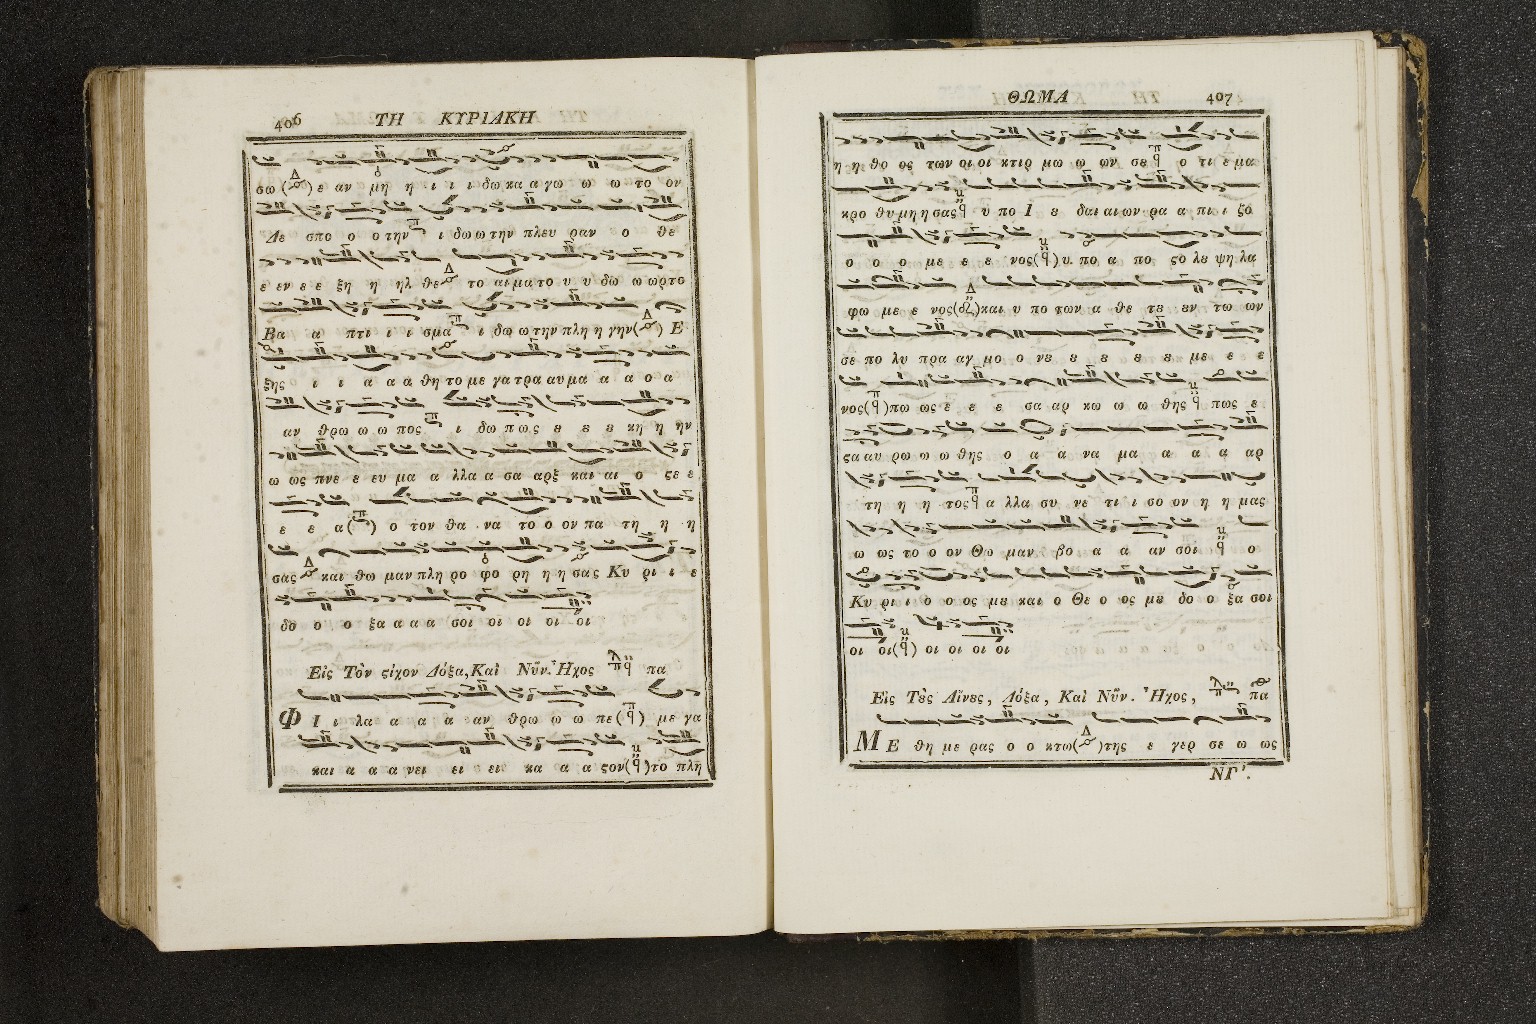 406 ΤΗ ΚΥΡΙΑΚΗ
σω ( Δ ) ε αν μη η ι ι ι δω κα α γω ω ω το ον
Δε σπο ο ο την ι δω ω την πλευ ραν ο θε
ε εν ε ε ξη η ηλ θε το αι μα το υ υ δω ω ωρ το
Βα α πτι ι ι σμα ι δω ω την πλη η γην ( Δ ) Ε
ξης ι ι α α α θη το με γα τρα αυ μα α α ο α
αν θρω ω ω πος ι δω πως ȣ ȣ ȣ κη η ην
ω ως πνε ε ευ μα α λλα α σα αρξ και αι ο ϛε ε
ε ε α ( π ) ο τον θα να το ο ον πα τη η η
σας και θω μαν πλη ρο φο ρη η η σας Κυ ρι ι ε
δο ο ο ξα α α α σοι οι οι οι οι
Εἰς Τὸν ϛίχον Δόξα, Καὶ Νῦν. Ἦχος πα
Φ Ι ι λα α α α αν θρω ω ω πε ( ) με γα
και α α α νει ει ει κα α α ϛον ( ) το πλη
ΘΩΜΑ 407
η η θο ος των οι οι κτιρ μω ω ων σȣ ο τι ε μα
κρο θυ μη η σας υ πο Ι ȣ δαι αι ων ρα α πι ι ζο
ο ο ο με ε ε νος ( ) υ πο α πο ϛο λȣ ψη λα
φω με ε νος ( ) και υ πο των α θε τȣ ȣν τω ων
σε πο λυ πρα αγ μο ο νȣ ȣ ȣ ȣ ȣ με ε ε
νος ( ) πω ως ε ε ε σα αρ κω ω ω θης πως ε
ϛα αυ ρω ω ω θης ο α α να μα α α α αρ
τη η η τος α λλα συ νε τι ι σο ον η η μας
ω ως το ο ον Θω μαν βο α α αν σοι ο
Κυ ρι ι ο ο ος μȣ και ο Θε ο ος μȣ δο ο ξα σοι
οι οι ( ) οι οι οι οι
Εἰς Τȣ̀ς Αἴνȣς, Δόξα, Καὶ Νῦν. Ἦχος, πα
Μ Ε θη με ρας ο ο κτω ( Δ ) της ε γερ σε ω ως
ΝΓ'.